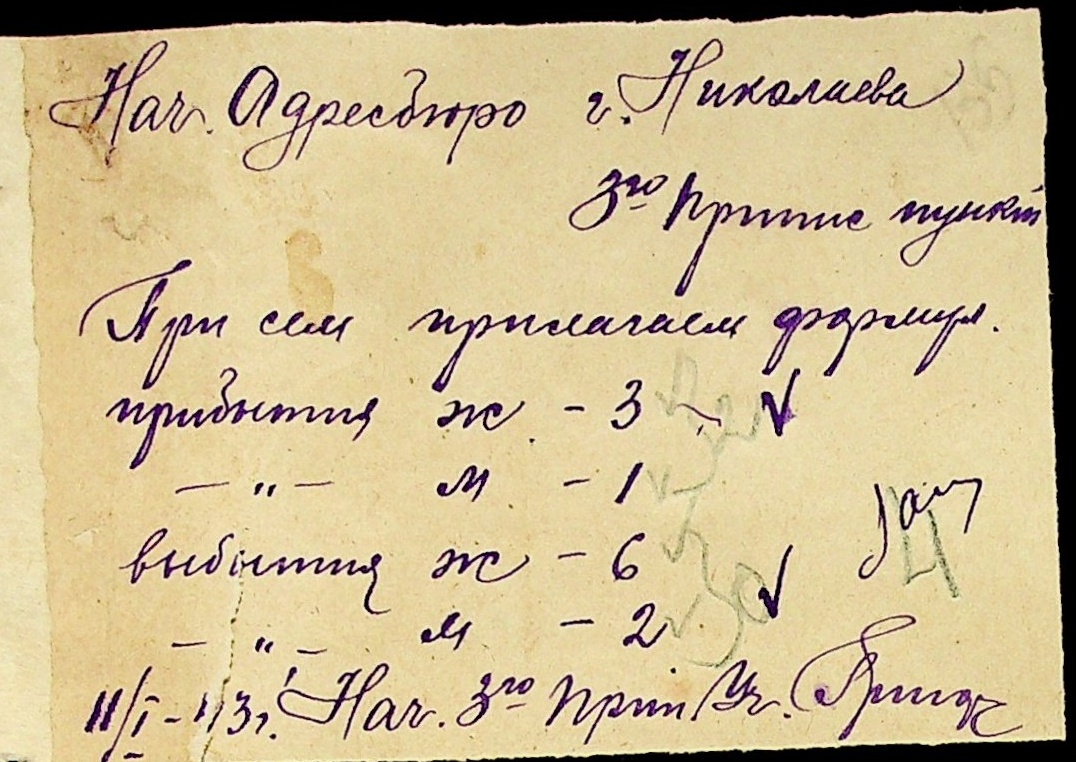 Нач. Адресбюро г. Николаева
3го припис пункт
При сем прилагаем формул.
прибытия ж - 3
— " — м - 1
выбытия ж - 6
— " — м - 2
11/I - 43 г. Нач. 3го прип Уч.